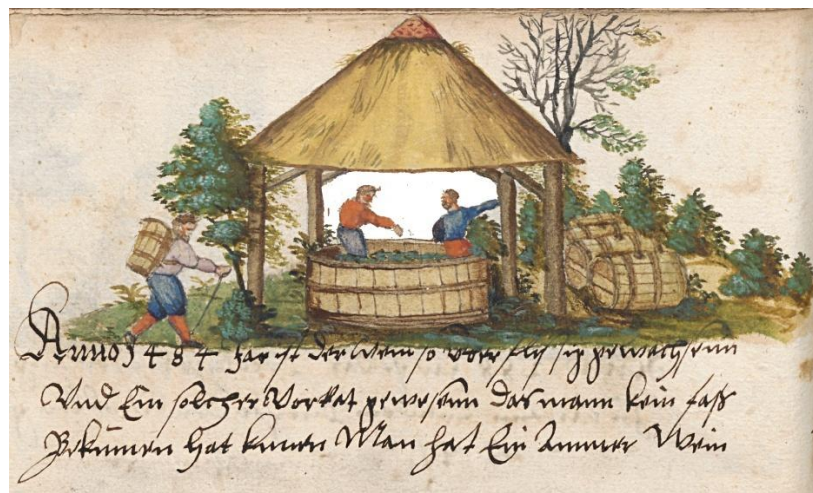 Anno 1484 Jar ist der Wein so vberflissig gewachsenn
Vnd Ein solcher Vorrat gewesenn das mann kein fass
Bekumen hat kinen Man hat Ein Ammer Wein